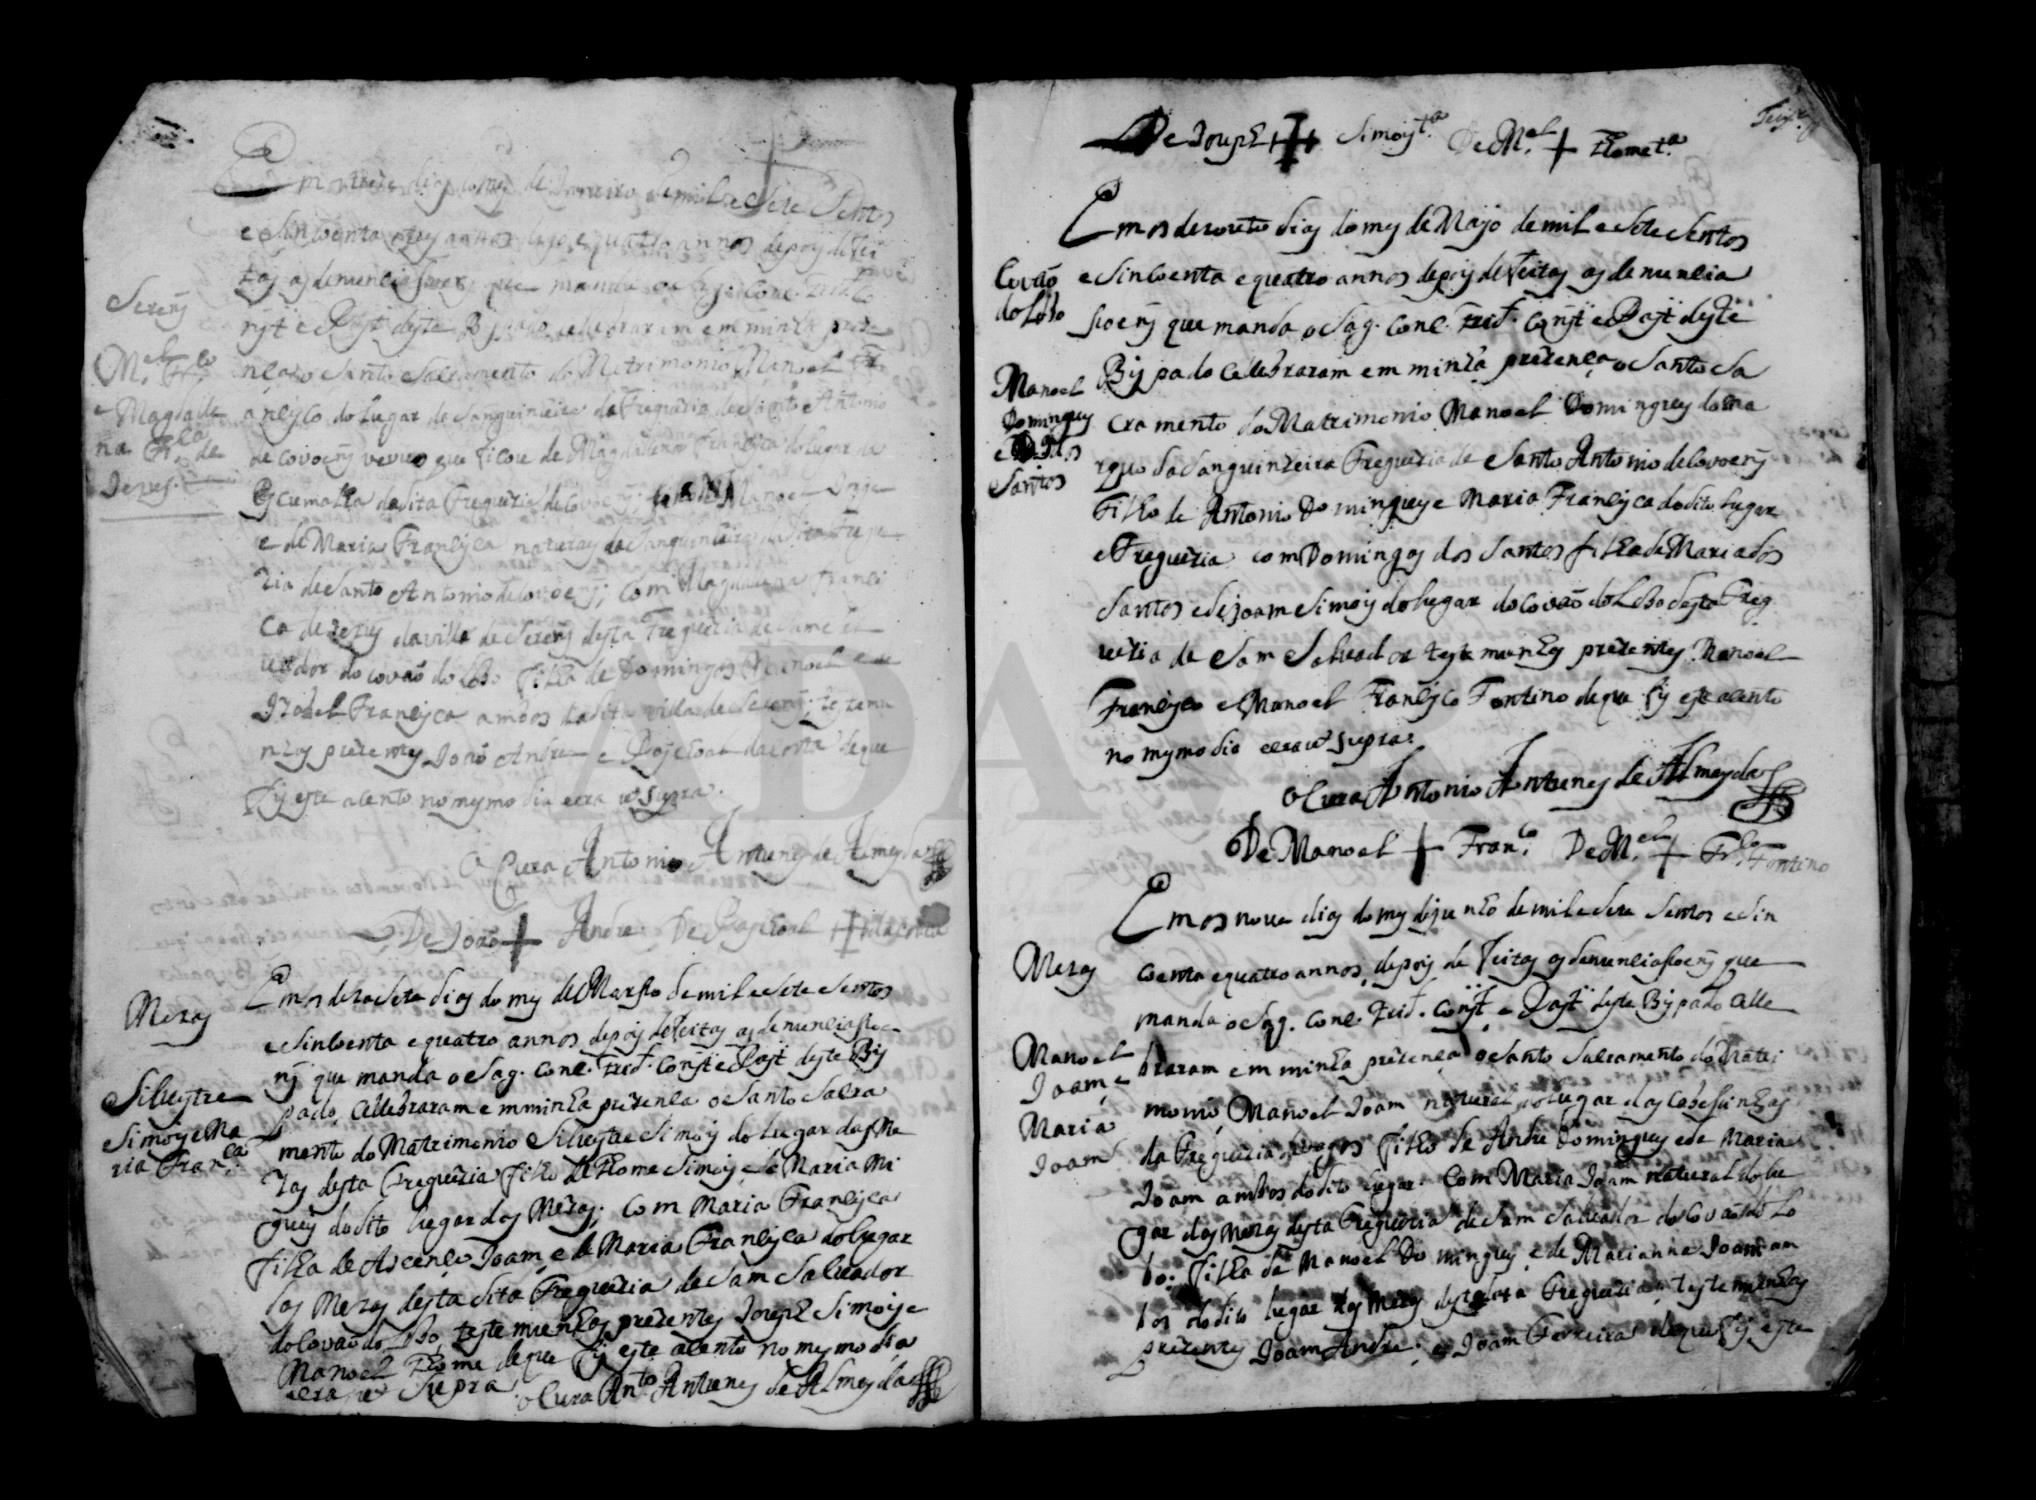 Em os treze dias do mes de Janeiro de mil e sete Sentos
e Sincoenta e quatro annos depois de fei
tas as denunciasoens que manda o Sag. Conc. Trid.
Const e Past deste Bispado celebraram em minha prezen
Sa o Santo Sacramento do Matrimonio Manoel Fr
ancisco do Lugar de Sanguinheira da Freguezia de Santo Antonio
de Covoens veuvo que ficou de Magdalena Francisca do lugar da
Escumalha da dita Freguezia de Covoens; Manoel
e de Maria Francisca naturaes da Sanguinheira da dita Fregue
zia de Santo Antonio de Covoens; Com Magdalena Francis
Ca de Jezus da villa de Serem desta Freguezia de Sam Sal
uador do Covão do Lobo filha de Domingos Manoel e de
Izabel Francisca ambos da dita villa de Serem; testemu
nhas prezentes João Andre e Paschoal da Costa de que
fis este asento no mesmo dia e era ut supra.
O Cura Antonio Antunes de Almeyda
De João + Andre De Paschoal + da Costa
Serem
M.el Fr.co
e Magdale
na Fr.ca de
Jezus.
Em os dezasete dias do mes de Marsso de mil e Sete Sentos
e Sincoenta e quatro annos depois de feitas as denunciasoe
ns que manda o Sag. Conc. Trid. Const e Past deste Bis
pado, Cellebraram em minha prezenca o Santo Sacra
mento do Matrimonio Siluestre Simois do lugar das Me
zas desta Freguezia filho de Thome Simois e de Maria Mi
gueis do dito lugar das Mezas; Com Maria Francisca
filha de Ascenco Joam e de Maria Francisca do lugar
das Mezas desta dita Freguezia de Sam Saluador
do Covão do Lobo, testemunhas prezentes Joseph Simois e
Manoel Thome de que fis este asento no mesmo dia
e era ut Supra. O Cura An.to Antunes de Almeyda
Mezas
Siluestre
Simois e Ma
ria Fran.ca
De Joseph + Simois t.a De M.el + Thome t.a
Em os dezouto dias do mes de Majo de mil e Sete Sentos
e Sincoenta e quatro annos depois de feitas as denuncia
soens que manda o Sag. Conc. Trid. Const e Past deste
Bispado Cellebraram em minha prezenca o Santo Sa
cramento do Matrimonio Manoel Domingues do
da Sanguinheira Freguezia de Santo Antonio de Covoens
filho de Antonio Domingues e Maria Francisca do dito lugar
e Freguezia com Domingas dos Santos filha de Maria dos
Santos e de Joam Simois do lugar do Covão do Lobo desta Freg
uezia de Sam Saluador testemunhas prezentes Manoel
Francisco e Manoel Francisco Fontino de que fis este asento
no mesmo dia e era ut supra.
O Cura Antonio Antunes de Almeyda
De Manoel + Fran.co De M.el + Fr.co Fontino
Covão
do Lobo
Manoel
Domingues
e D.as dos
Santos
Em os noue dias do mes de junho de mil e Sete Sentos e Sin
coenta e quatro annos, depois de feitas as denunciasoens que
manda o Sag. Conc. Trid. Const e Past deste Bispado Celle
braram em minha prezenca o Santo Sacramento do Matri
monio, Manoel Joam natural do lugar das Cabesinhas
da Freguezia de Vagos filho de Andre Domingues e de Maria
Joam ambos do dito lugar. Com Maria Joam natural do lu
gar das Mezas desta Freguezia de Sam Saluador do Covão do Lo
bo: filha de Manoel Domingues e de Marianna Joam am
bos do dito lugar das Mezas desta dita Freguezia, testemunhas
prezentes Joam Andre e Joam Ferreira de que fis este
Mezas
Manoel
Joam e
Maria
Joam